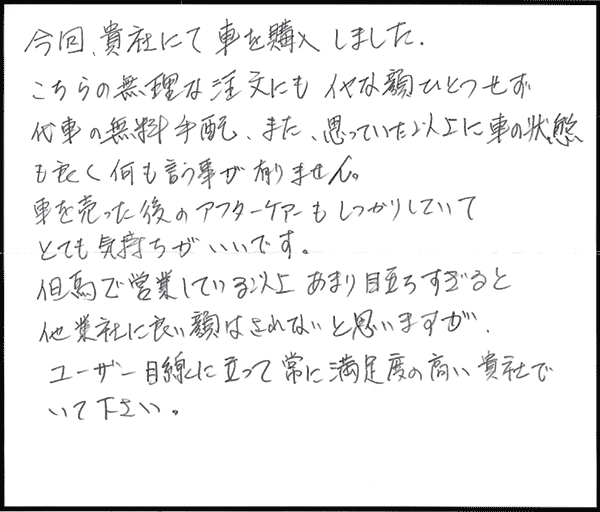 今回、貴社にて車を購入しました.
こちらの無理な注文にもイヤな顔ひとつせず
代車の無料手配、また、思っていた以上に車の状態
も良く何も言う事が有りません。
車を売った後のアフターケアーもしっかりしていて
とても気持ちがいいです。
但馬で営業している以上あまり目立ちすぎると
他業社に良い顔はされないと思いますが、
ユーザー目線に立って常に満足度の高い貴社で
いて下さい。